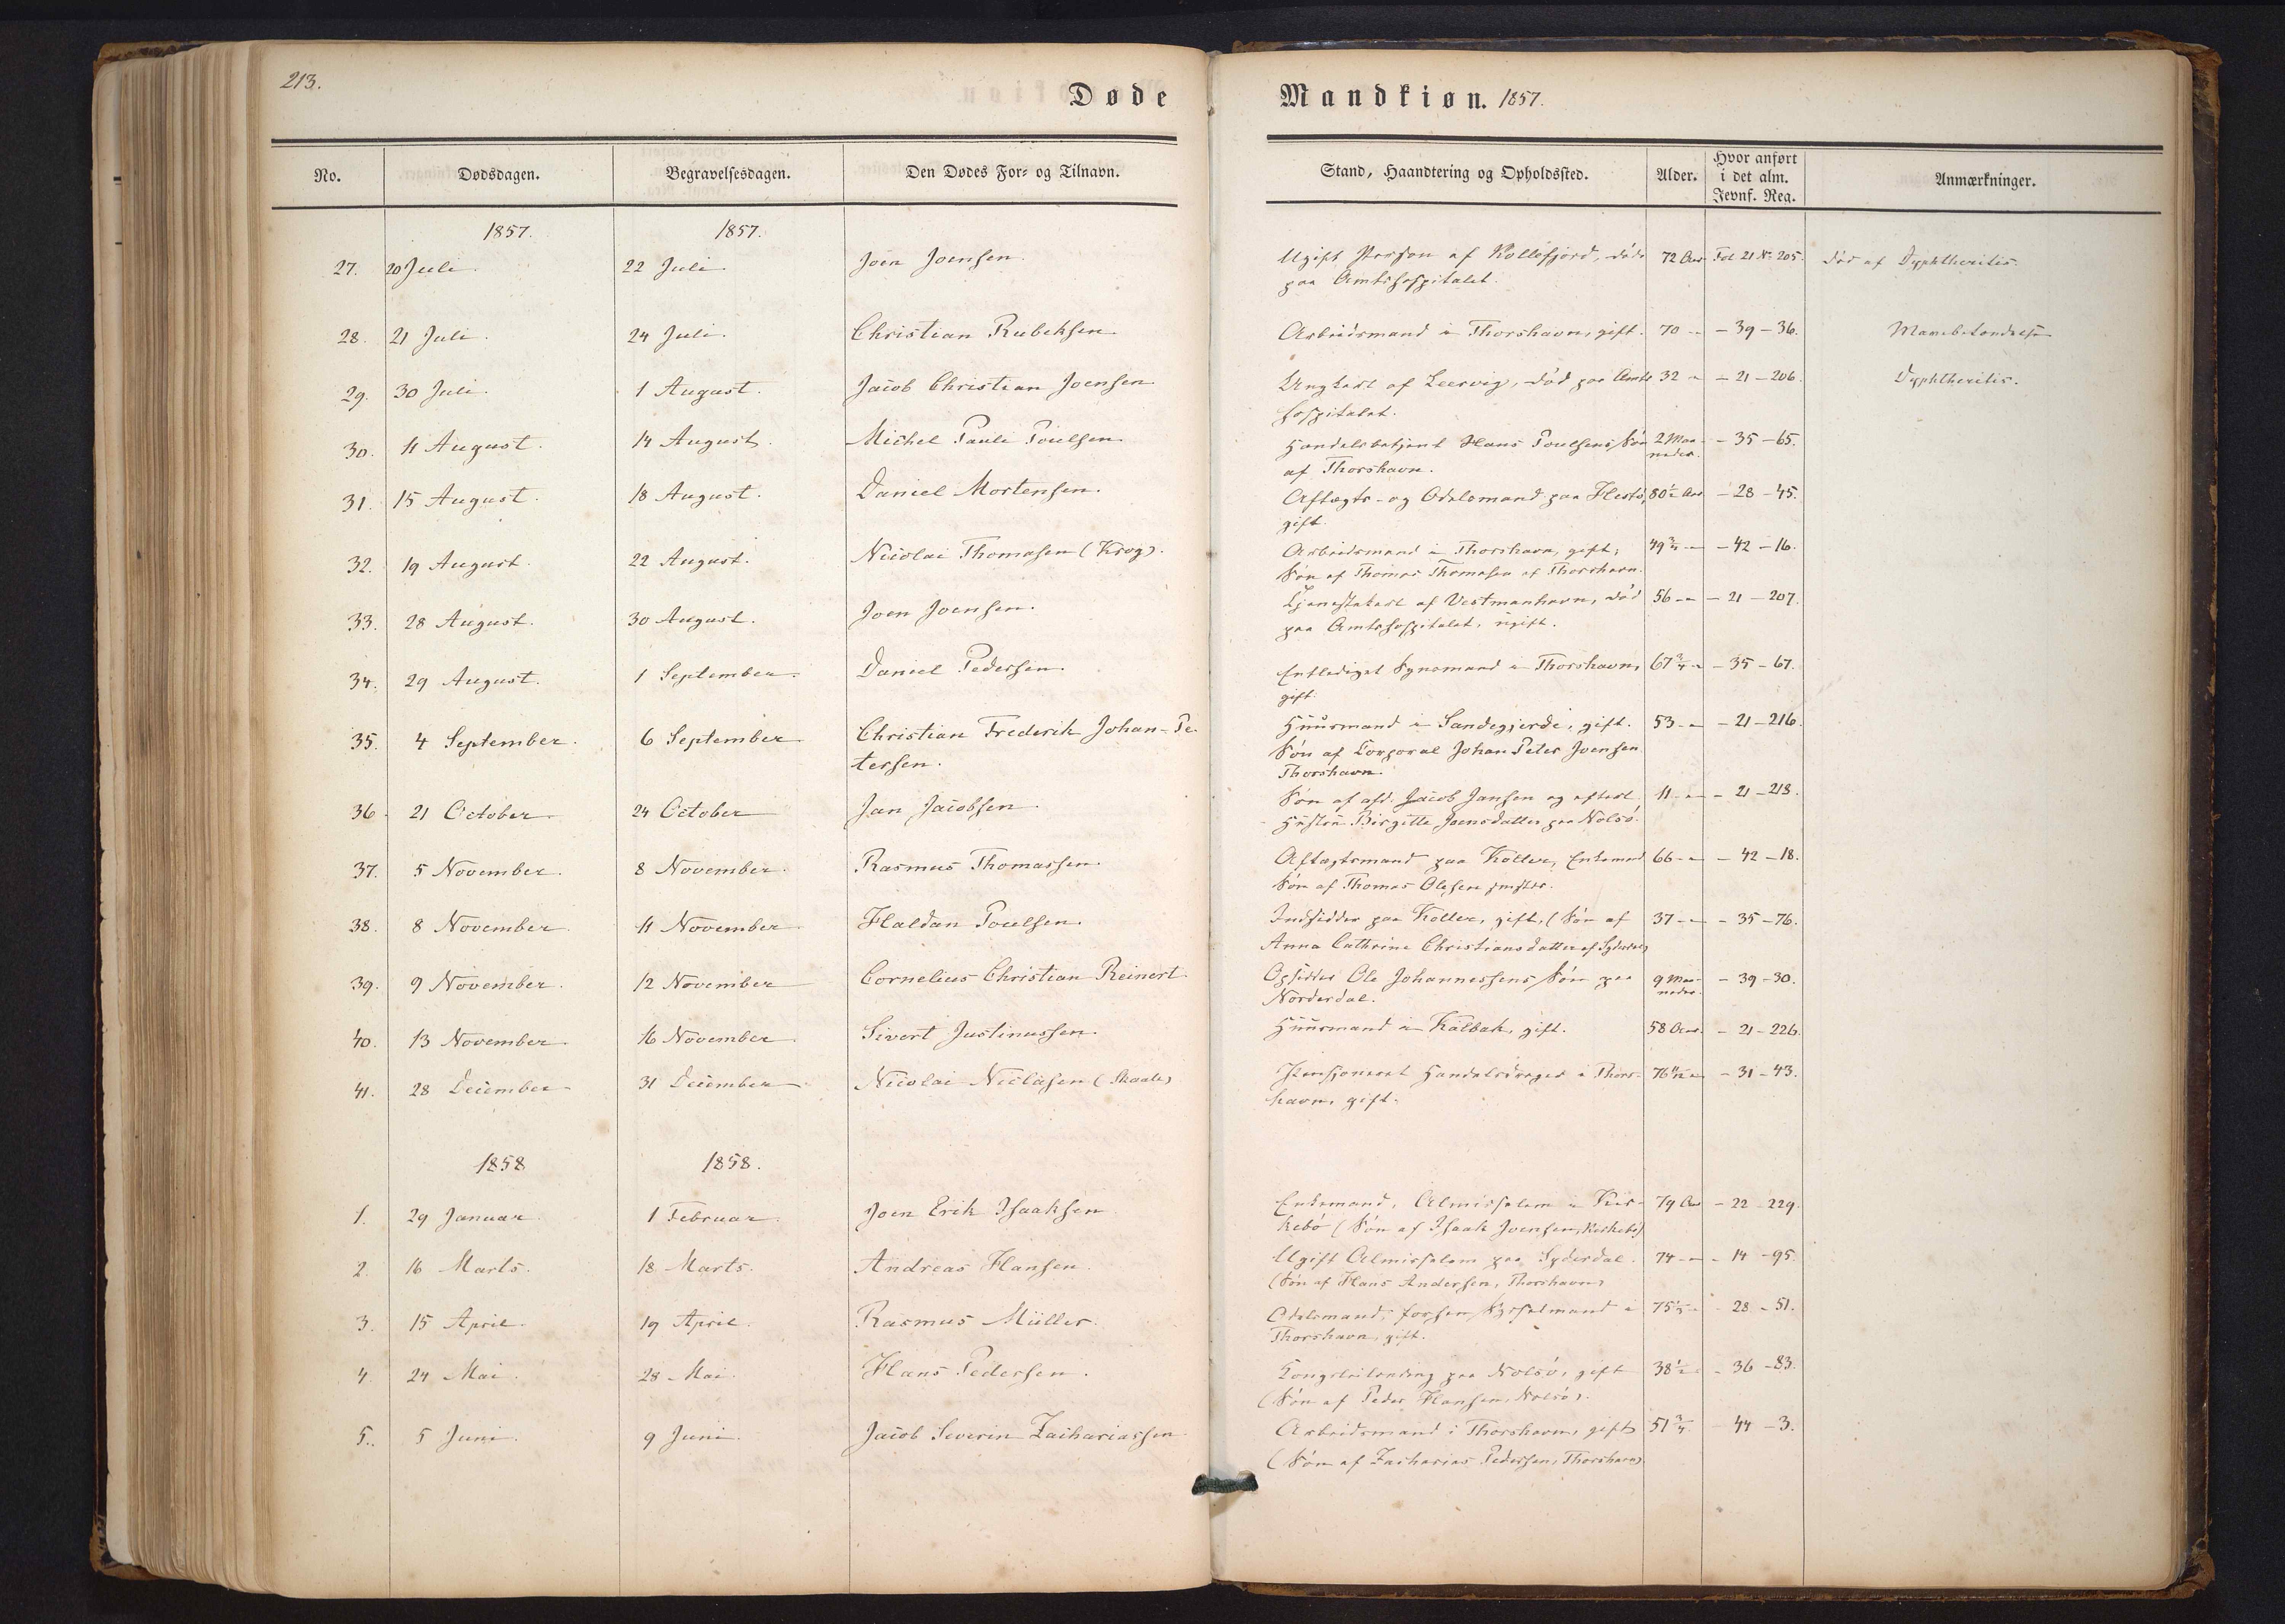 213.
Døde
Mandkiøn. 1857.
No.
Dødsdagen.
Begravelsesdagen.
Den Dødes For- og Tilnavn.
Stand, Haandtering og Opholdssted.
Alder.
Hvor anført
i det alm.
Jevnf. Reg.
Anmærkninger.
1857. 1857.
27. 20 Juli. 22 Juli. Joen Joensen. Ugift Person af Kollefjord, døde 72 Aar Fol 21 Nr. 205. død af Dyphtheritis.
paa Amtshospitalet.
28. 21 Juli. 24 Juli. Christian Rubeksen Arbeidsmand i Thorshavn, gift. 70 - - 39 - 36.
29. 30 Juli. 1 August. Jacob Christian Joensen Ungkarl af Leervig, død paa Amts 32 - - 21 - 206. Dyphtheritis.
hospitalet.
30. 11 August. 14 August. Michel Pauli Poulsen Handelsbetjent Hans Poulsens Søn 2 Maa- - 35 - 65.
af Thorshavn. neder.
31. 15 August. 18 August. Daniel Mortensen. Aftægts- og Odelsmand paa Hestø, 80½ Aar - 28 - 45.
gift.
32. 19 August. 22 August. Nicolai Thomasen (Krog). Arbeidsmand i Thorshavn, gift; 49¾ - - 42 - 16.
Søn af Thomas Thomasen af Thorshavn.
33. 28 August. 30 August. Joen Joensen. Tjenestekarl af Vestmanhavn, død 56 - - 21 - 207.
paa Amtshospitalet, ugift.
34. 29 August. 1 September. Daniel Pedersen. Entlediget Synsmand i Thorshavn, 67¾ - - 35 - 67.
gift.
35. 4 September. 6 September Christian Frederik Johan-Pe- Huusmand i Sandegjerde, gift. 53 - - 21 - 216.
tersen. Søn af Corporal Johan Peter Joensen
Thorshavn.
36. 21 October 24 October Jan Jacobsen. Søn af afd. Jacob Jansen og efterl. 11 - - 21 - 218.
Hustru Birgitte Joensdatter paa Nolsø.
37. 5 November. 8 November. Rasmus Thomassen. Aftægtsmand paa Kolter, Enkemand 66 - - 42 - 18.
Søn af Thomas Olesen
38. 8 November. 11 November Haldan Poulsen. Indsidder paa Kolter, gift, (Søn af 37 - - 35 - 76.
Anna Cathrine Christiansdatter af Syderdal)
39. 9 November. 12 November Cornelius Christian Reinert Opsidder Ole Johannessens Søn paa 9 Maa- - 39 - 30.
Norderdal. neder.
40. 13 November. 16 November Sivert Justinussen. Huusmand i Kalbak, gift. 58 Aar. - 21 - 226.
41. 28 December 31 December Nicolai Niclasen (Skaale) Pensioneret Handelsdreger i Thors- - 31 - 43.
havn, gift.
1858 1858.
1. 29 Januar. 1 Februar. Joen Erik Isaaksen Enkemand, Almisselem i Kir- 79 Aar - 22 - 229.
kebø (Søn af Isaak Joensen, Kirkebø)
2. 16 Marts. 18 Marts. Andreas Hansen. Ugift Almisselem paa Syderdal. 74 - - 14 - 95.
(Søn af Hans Andersen, Thorshavn)
3. 15 April. 19 April. Rasmus Müller. Odelsmand, forhen Sysselmand i - 28 - 51.
Thorshavn, gift.
4. 24 Mai. 28 Mai. Hans Pedersen. Kongsleilending paa Nolsø, gift 38½ - - 36 - 83.
(Søn af Peder Hansen, Nolsø).
5. 5 Juni. 9 Juni. Jacob Severin Zachariassen Arbeidsmand i Thorshavn, gift 51¾ - 44 - 3.
(Søn af Zacharias Pedersen, Thorshavn)